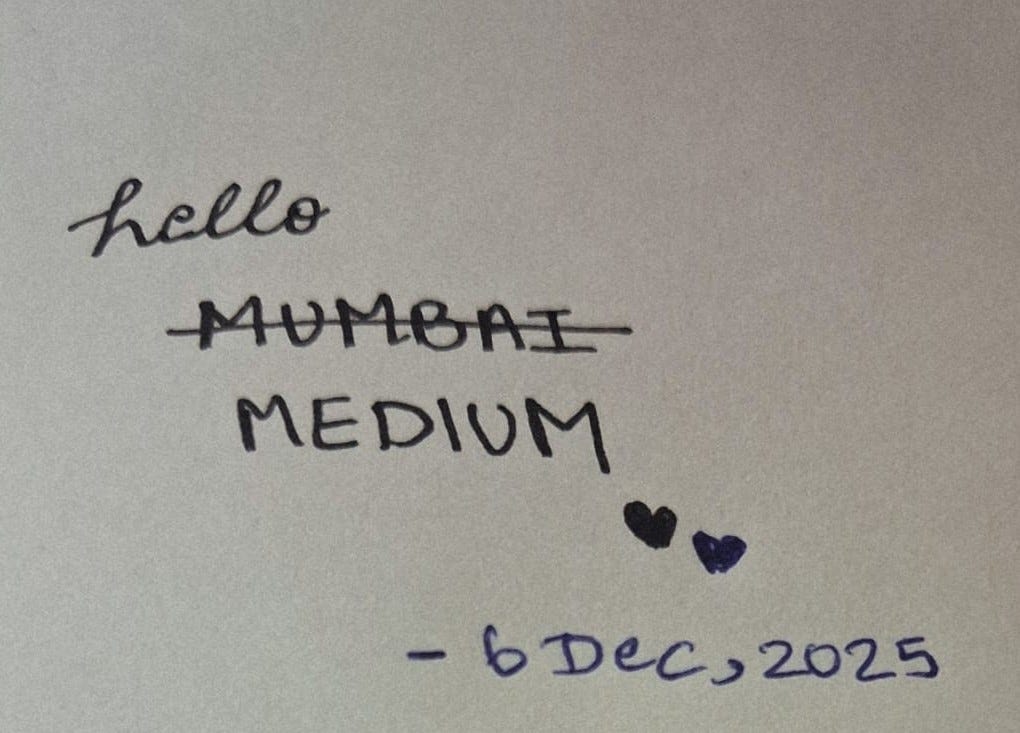 hello
MUMBAI
MEDIUM
- 6 Dec, 2025